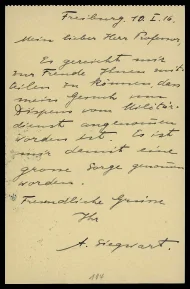 Freiburg 10. I. 16.
Mein lieber Herr Professor,
Es gereicht mir
zur Freude Ihnen mit-
teilen zu können, dass
mein Gesuch um
Dispens vom Militär-
dienst angenommen
worden ist. Es ist
mir damit eine
grosse Sorge genommen
worden.
Freundliche Grüsse
Ihr
A. Siegwart.